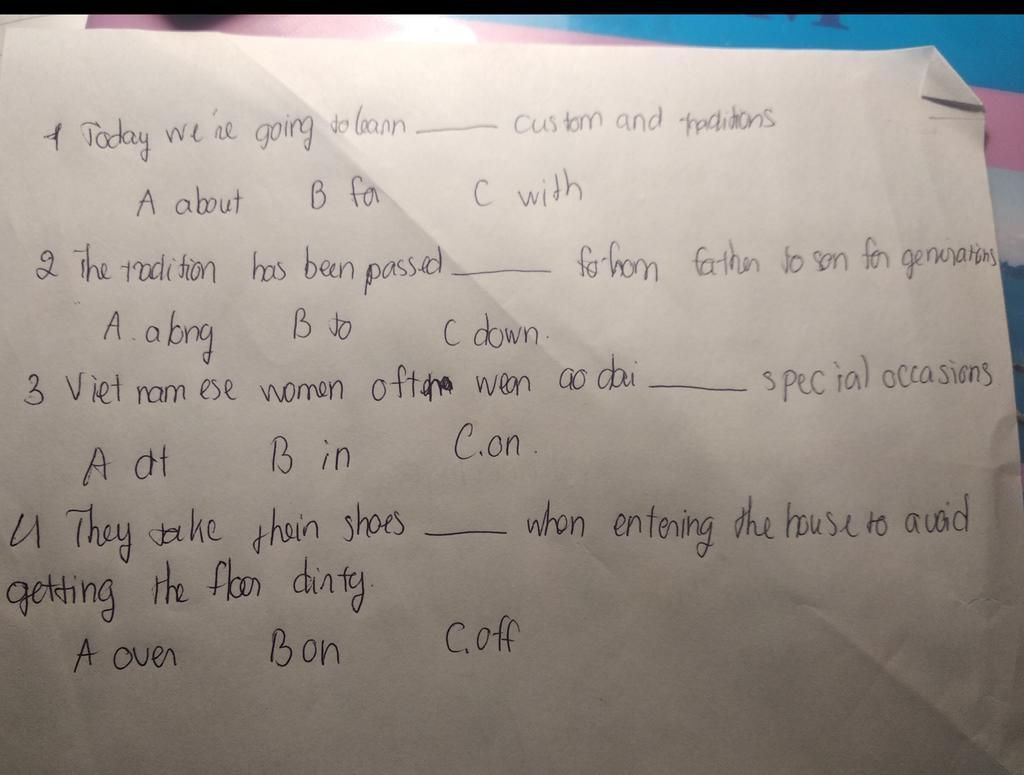 1 Today we're going to learn _____ custom and traditions
A about B for C with
2 The tradition has been passed _____ from father to son for generations
A. along B to C down.
3 Viet nam ese women often wear ao dai _____ special occasions
A at B in C. on.
4 They take their shoes _____ when entering the house to avoid
getting the floor dirty.
A over B on C. off